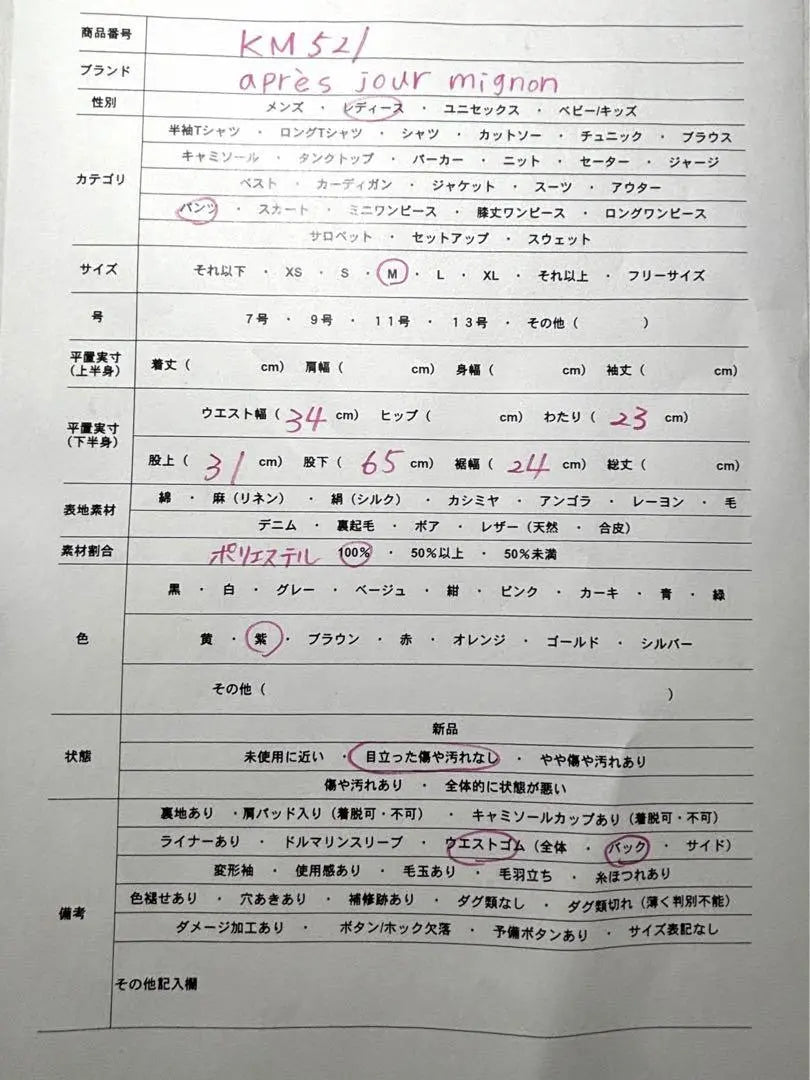 商品番号 KM521
ブランド après jour mignon
性別 メンズ ・ レディース ・ ユニセックス ・ ベビー/キッズ
カテゴリ
半袖Tシャツ ・ ロングTシャツ ・ シャツ ・ カットソー ・ チュニック ・ ブラウス
キャミソール ・ タンクトップ ・ パーカー ・ ニット ・ セーター ・ ジャージ
ベスト ・ カーディガン ・ ジャケット ・ スーツ ・ アウター
パンツ ・ スカート ・ ミニワンピース ・ 膝丈ワンピース ・ ロングワンピース
サロペット ・ セットアップ ・ スウェット
サイズ それ以下 ・ XS ・ S ・ M ・ L ・ XL ・ それ以上 ・ フリーサイズ
号 7号 ・ 9号 ・ 11号 ・ 13号 ・ その他（ ）
平置実寸
（上半身）
着丈（ cm） 肩幅（ cm） 身幅（ cm） 袖丈（ cm）
平置実寸
（下半身）
ウエスト幅（34 cm） ヒップ（ cm） わたり（23 cm）
股上（31 cm） 股下（65 cm） 裾幅（24 cm） 総丈（ cm）
表地素材
綿 ・ 麻（リネン） ・ 絹（シルク） ・ カシミヤ ・ アンゴラ ・ レーヨン ・ 毛
デニム ・ 裏起毛 ・ ボア ・ レザー（天然 ・ 合皮）
素材割合 ポリエステル 100% ・ 50%以上 ・ 50%未満
色
黒 ・ 白 ・ グレー ・ ベージュ ・ 紺 ・ ピンク ・ カーキ ・ 青 ・ 緑
黄 ・ 紫 ・ ブラウン ・ 赤 ・ オレンジ ・ ゴールド ・ シルバー
その他（ ）
状態
新品
未使用に近い ・ 目立った傷や汚れなし ・ やや傷や汚れあり
傷や汚れあり ・ 全体的に状態が悪い
備考
裏地あり ・肩パッド入り（着脱可・不可） ・ キャミソールカップあり（着脱可・不可）
ライナーあり ・ ドルマリンスリーブ ・ ウエストゴム（全体 ・ バック ・ サイド）
変形袖 ・ 使用感あり ・ 毛玉あり ・ 毛羽立ち ・ 糸ほつれあり
色褪せあり ・ 穴あきあり ・ 補修跡あり ・ タグ類なし ・ タグ類切れ（薄く判別不能）
ダメージ加工あり ・ ボタン/ホック欠落 ・ 予備ボタンあり ・ サイズ表記なし
その他記入欄